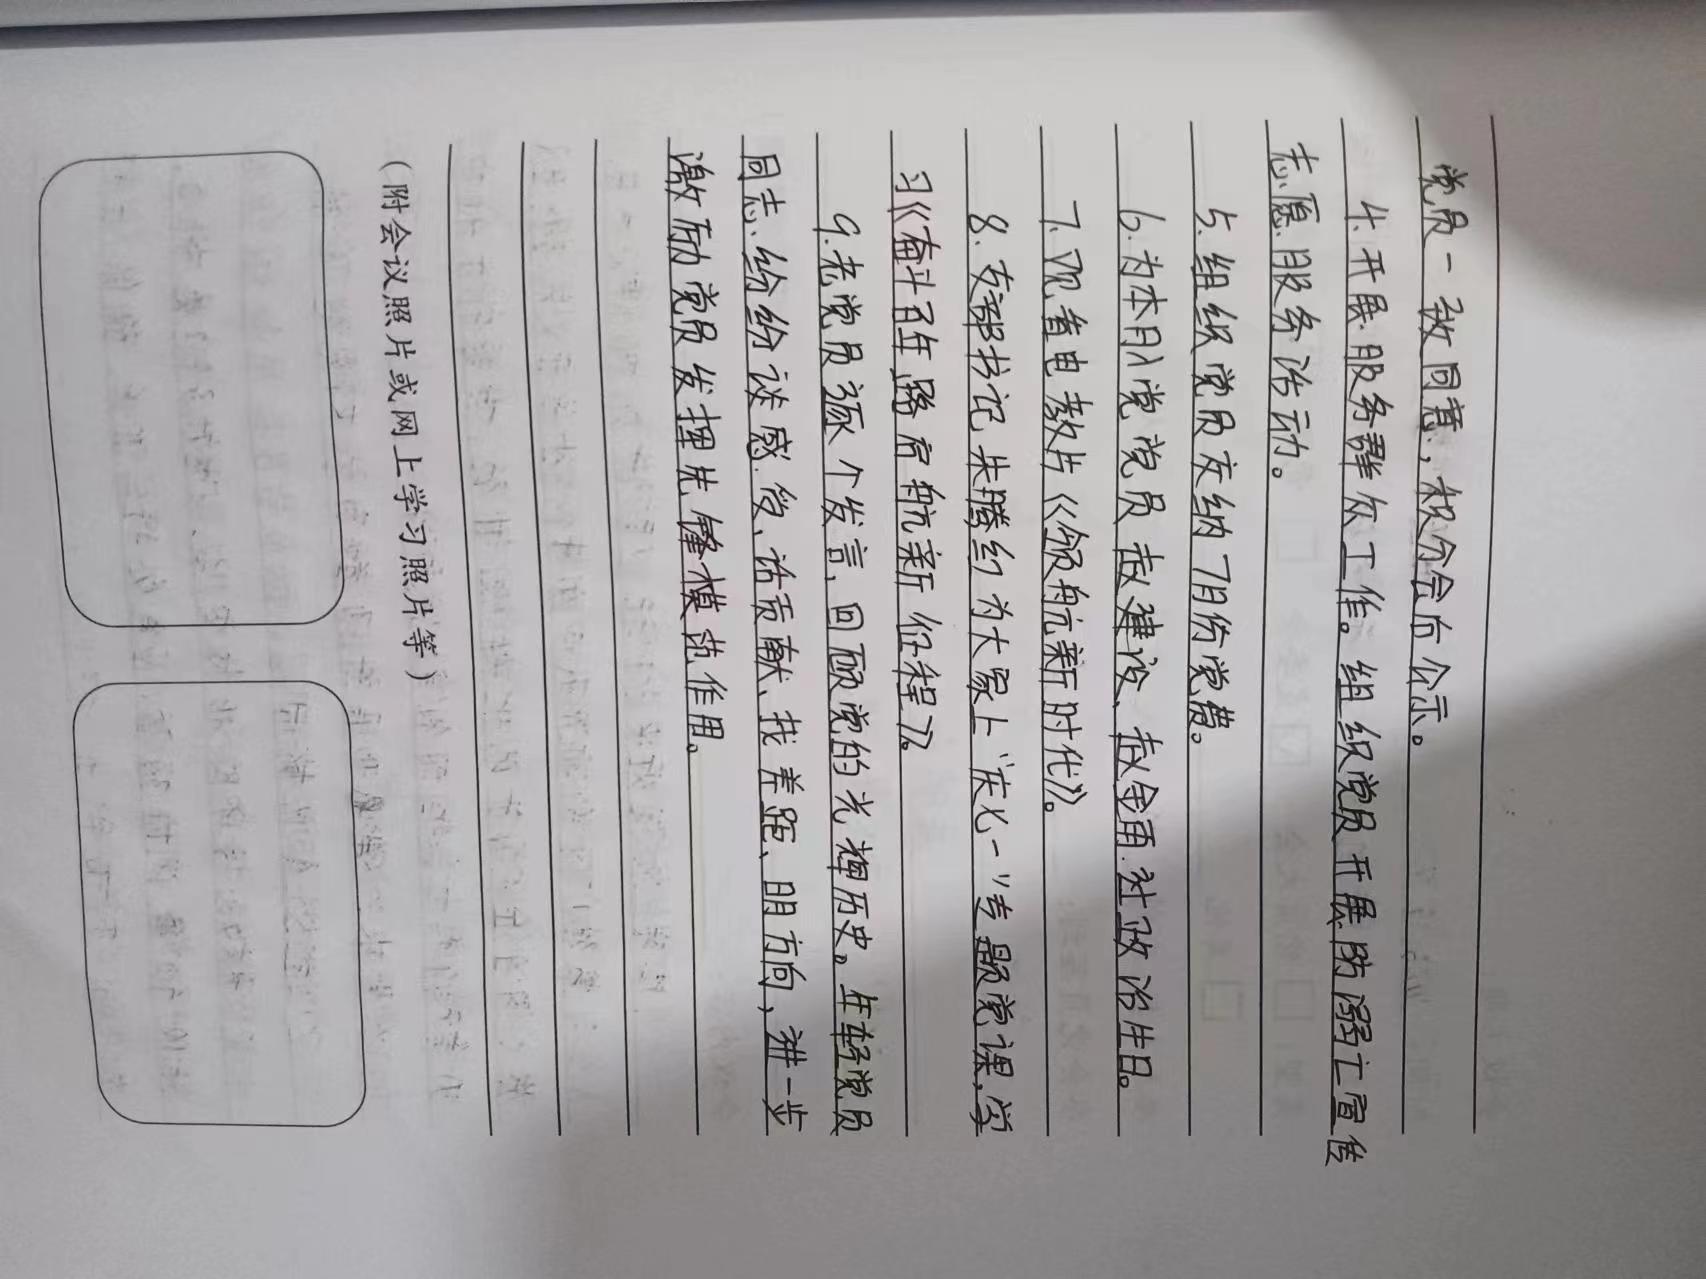 党员一致同意，积分会后公示。
4.开展服务群众工作。组织党员开展防溺亡宣传
志愿服务活动。
5.组织党员交纳7月份党费。
6.为本月入党党员赵建设、赵金甬过政治生日。
7.观看电教片《领航新时代》。
8.支部书记朱腾约为大家上“庆七一”专题党课，学
习《奋斗百年路启航新征程》。
9.老党员逐个发言，回顾党的光辉历史。年轻党员
同志、纷纷谈感受、话贡献、找差距、明方向，进一步
激励党员发挥先锋模范作用。
（附会议照片或网上学习照片等）